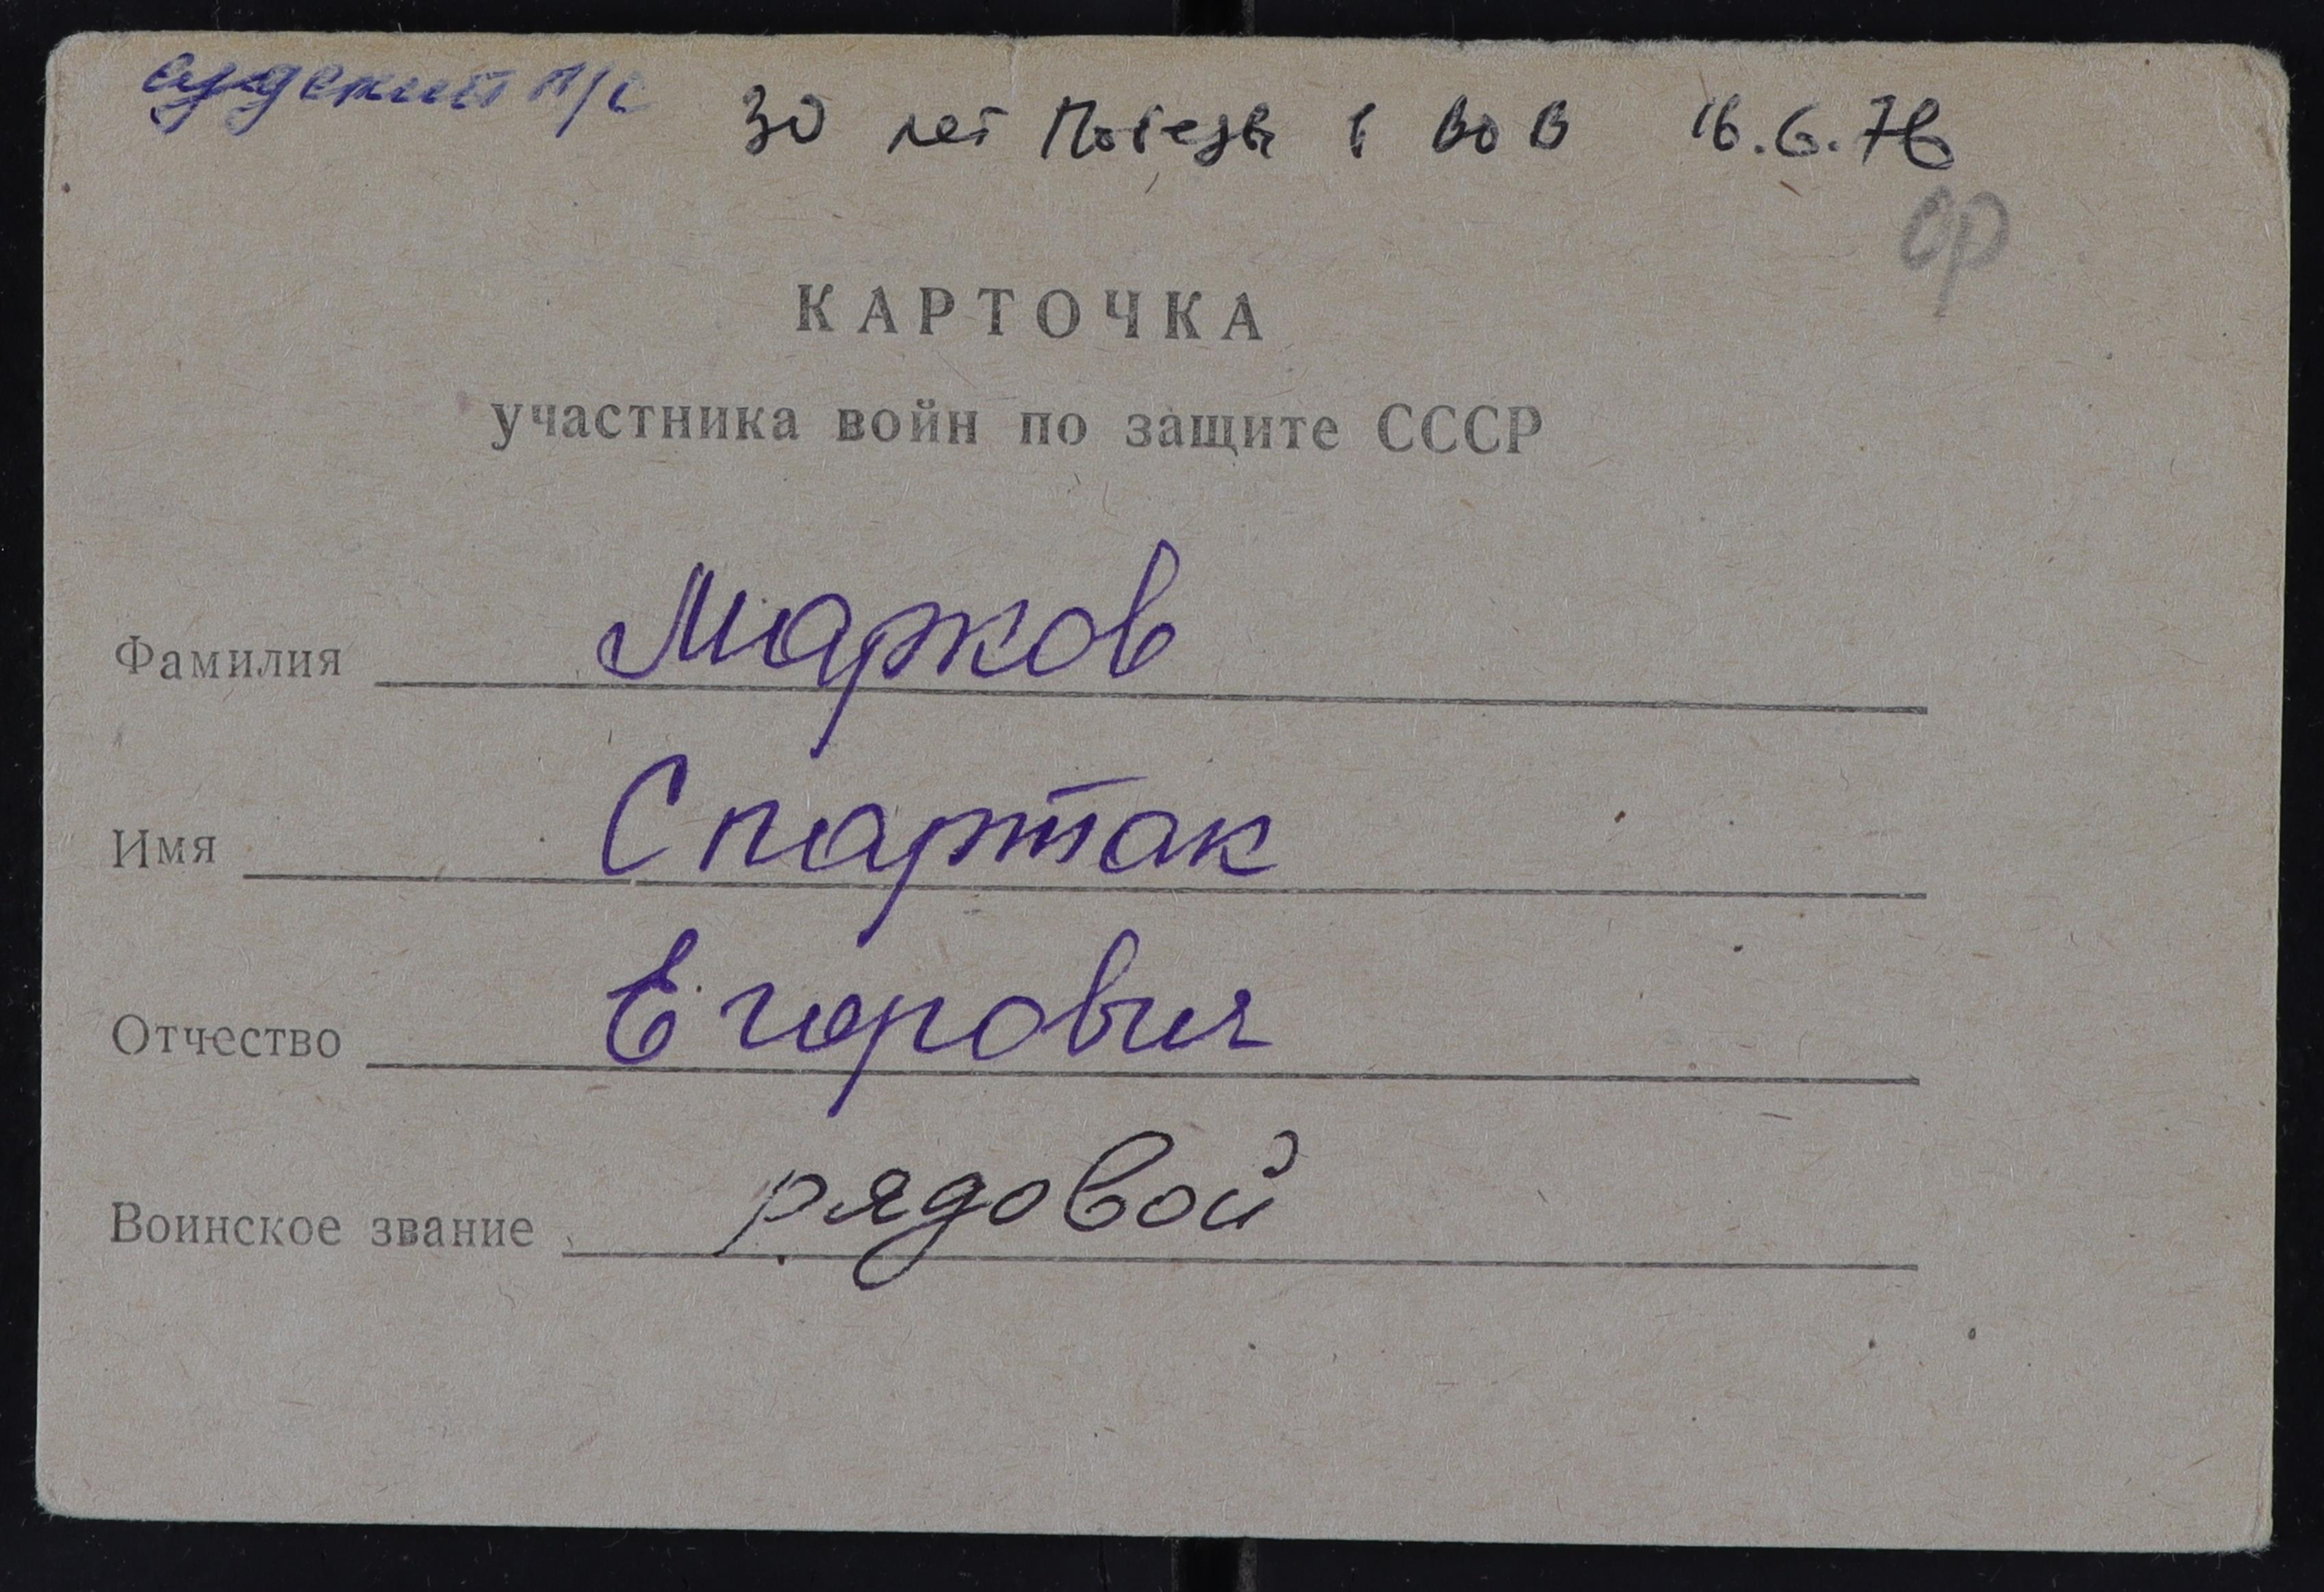 п/с
30 лет Победы в ВОВ 16.6.76
ср
КАРТОЧКА
участника войн по защите СССР
Фамилия Марков
Имя Спартак
Отчество Егорович
Воинское звание рядовой